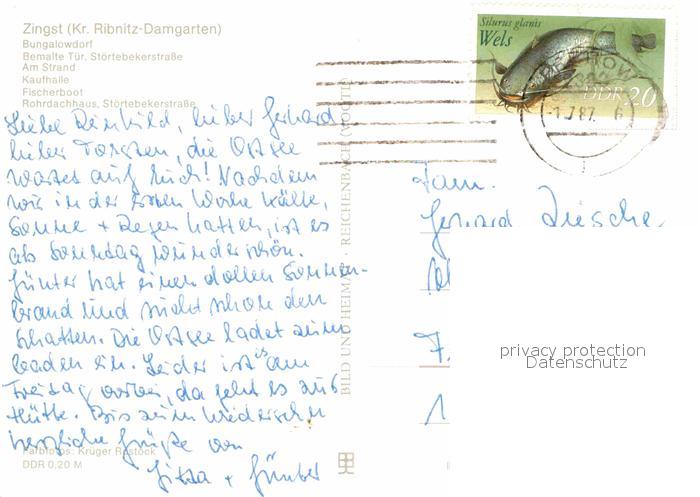 Zingst (Kr. Ribnitz-Damgarten)
Bungalowdorf
Bemalte Tür, Störtebekerstraße
Am Strand
Kaufhalle
Fischerboot
Rohrdachhaus, Störtebekerstraße
Liebe Reinhild, lieber Gerhard
lieber Torsten, die Ostsee
wartet auf Euch! Nachdem
wir in der ersten Woche Kälte,
Sonne + Regen hatten, ist es
ab Sonntag wunderschön.
Günter hat einen dollen Sonnen-
brand und sucht schon den
Schatten. Die Ostsee ladet zum
baden ein. Leider ist's am
Freitag vorbei, da geht es zur
Hütte. Bis zum Wiedersehn
herzliche Grüße von
Gitta + Günter
Farbfotos: Krüger Rostock
DDR 0,20 M
BILD UND HEIMAT · REICHENBACH (VOGTL)
Silurus glanis
Wels
DDR 20
-1.7.87. 6
Fam.
Gerhard
7.
1
privacy protection
Datenschutz